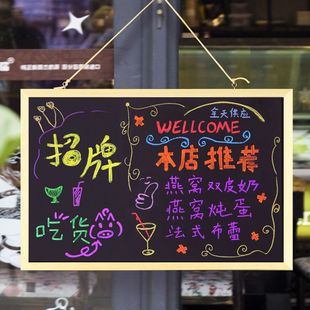 全天供应
WELLCOME
招牌
本店推荐
燕窝双皮奶
燕窝炖蛋
法式布蕾
吃货